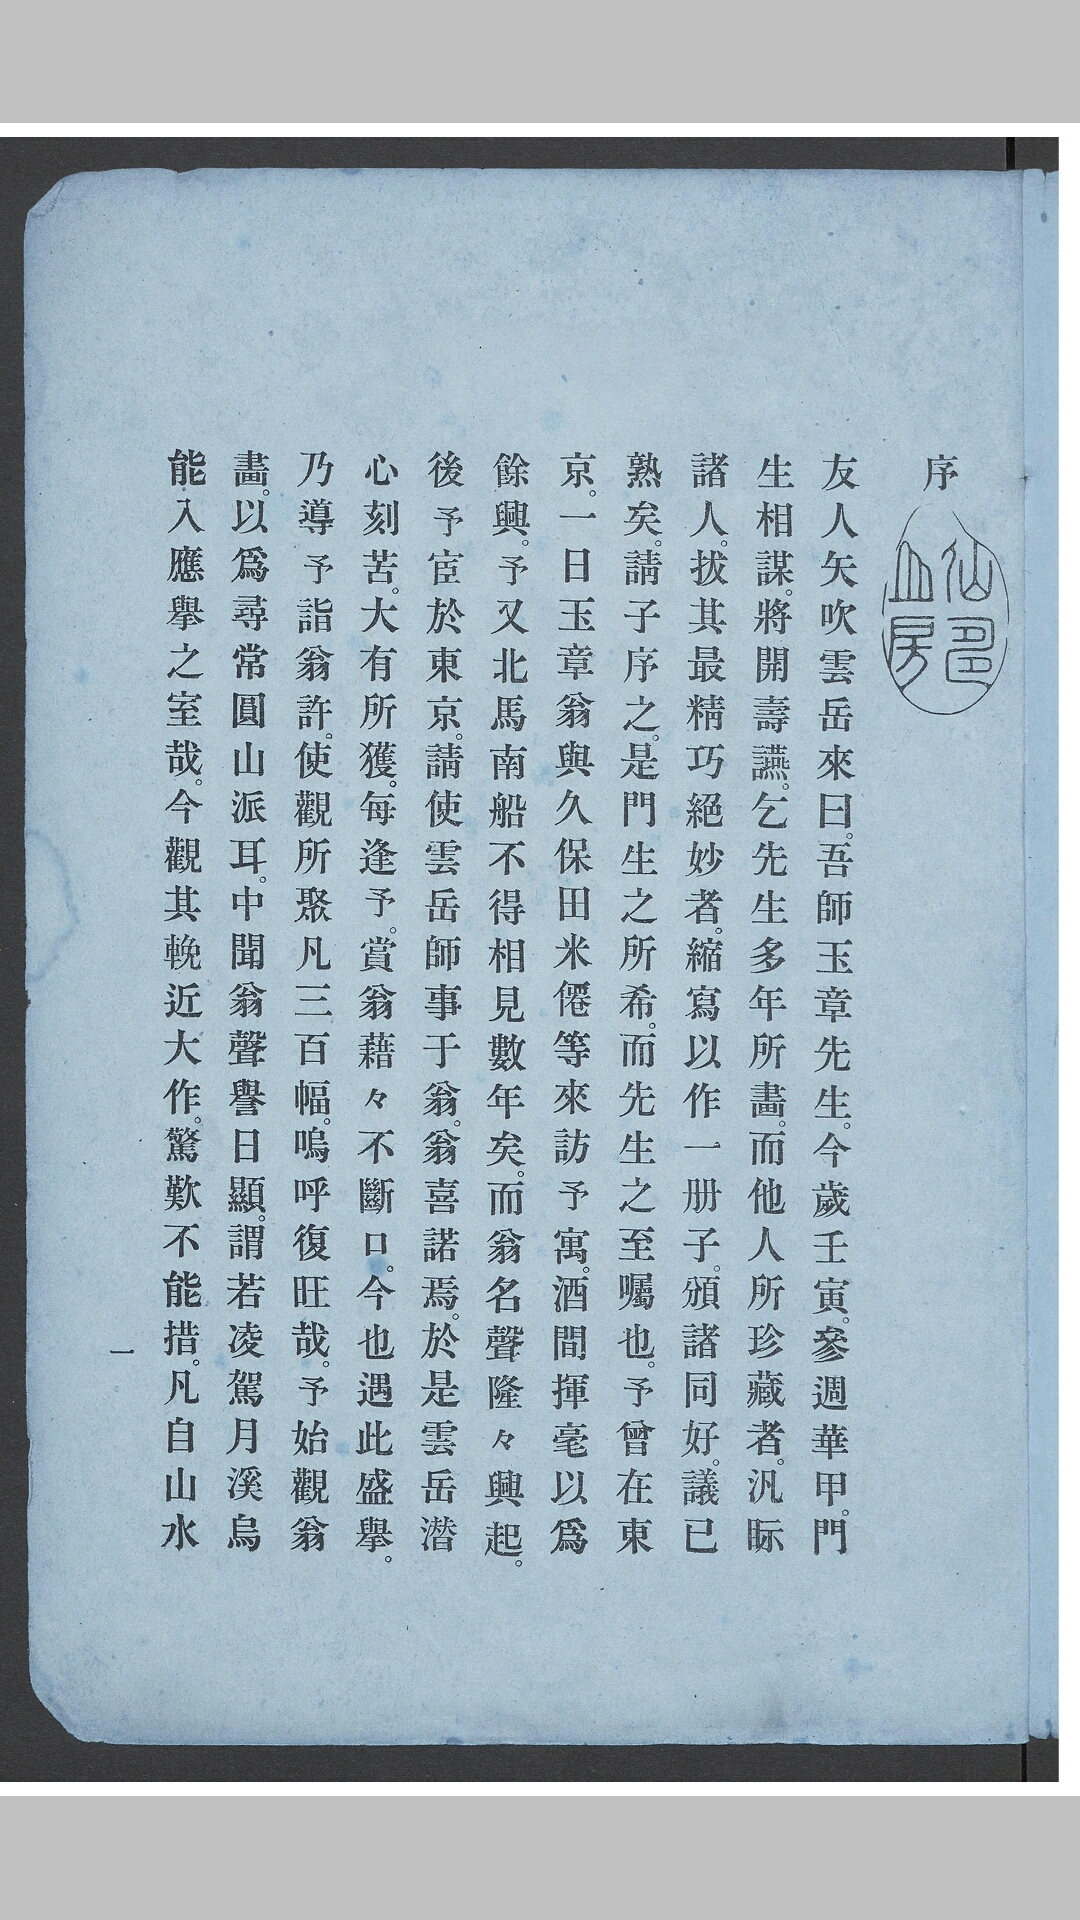 序
仙邑
血房
友人矢吹雲岳來曰。吾師玉章先生。今歲壬寅。參週華甲。門
生相謀。將開壽讌。乞先生多年所畫。而他人所珍藏者。汎眎
諸人。拔其最精巧絕妙者。縮寫以作一册子。頒諸同好。議已
熟矣。請子序之。是門生之所希。而先生之至囑也。予曾在東
京。一日玉章翁與久保田米僊等來訪予寓。酒間揮毫以爲
餘興。予又北馬南船不得相見數年矣。而翁名聲隆々興起。
後予宦於東京。請使雲岳師事于翁。翁喜諾焉。於是雲岳潛
心刻苦。大有所獲。每逢予。賞翁藉々不斷口。今也遇此盛擧。
乃導予詣翁許。使觀所聚凡三百幅。嗚呼復旺哉。予始觀翁
畫。以爲尋常圓山派耳。中聞翁聲譽日顯。謂若凌駕月溪烏
能入應擧之室哉。今觀其輓近大作。驚歎不能措。凡自山水
一